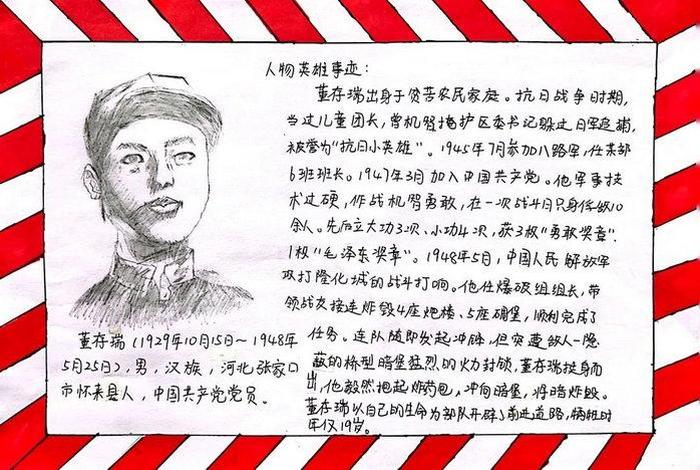 人物英雄事迹:
董存瑞出身于贫苦农民家庭。抗日战争时期,
当过儿童团长,曾机智掩护区委书记躲过日军追捕,
被誉为“抗日小英雄”。1945年7月参加八路军,任某部
6班班长。1947年3月加入中国共产党。他军事技
术过硬,作战机智勇敢,在一次战斗中只身俘敌10
余人。先后立大功3次、小功4次,获3枚“勇敢奖章”
1枚“毛泽东奖章”。1948年5月,中国人民解放军
攻打隆化城的战斗打响。他任爆破组组长,带
领战友接连炸毁4座炮楼、5座碉堡,顺利完成了
任务。连队随即发起冲锋,但突遭敌人一隐
蔽的桥型暗堡猛烈的火力封锁,董存瑞挺身而
出,他毅然抱起炸药包,冲向暗堡,将暗炸毁。
董存瑞以自己的生命为部队开辟了前进道路,牺牲时
年仅19岁。
董存瑞(1929年10月15日~1948年
5月25日),男,汉族,河北张家口
市怀来县人,中国共产党党员。